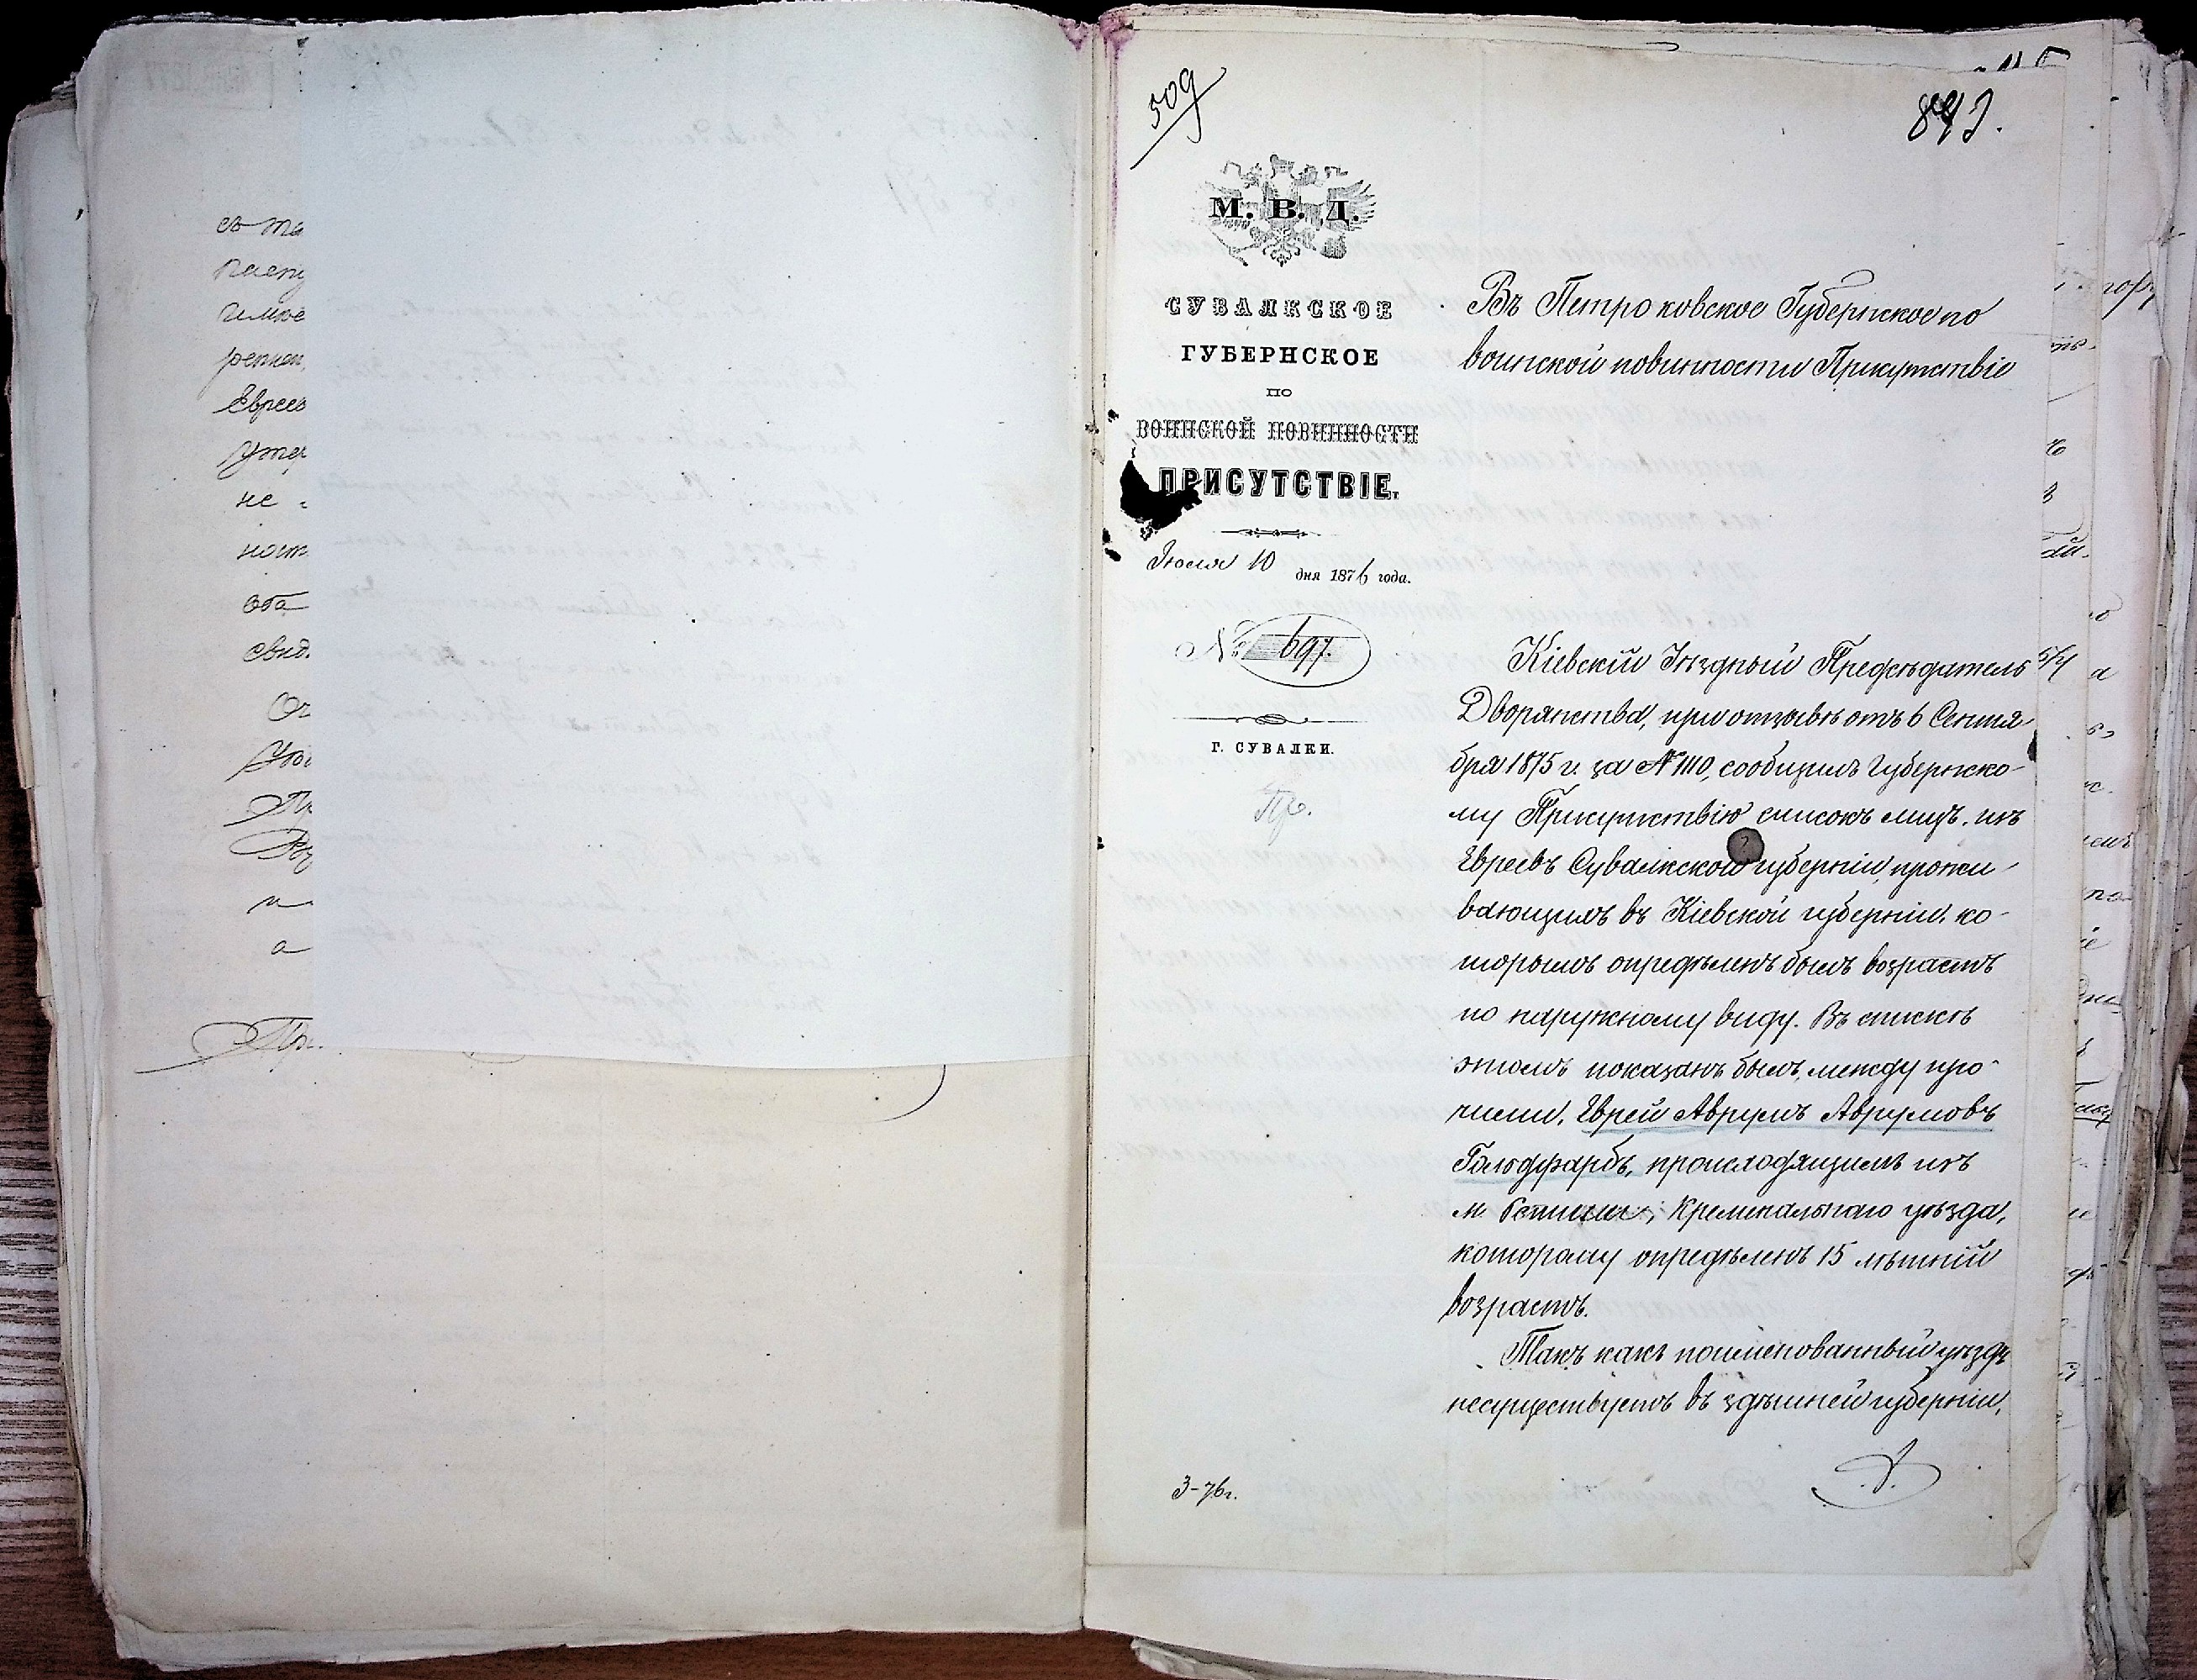 съ та
Евреевъ
не
оба
свид.
а
Пр.
509
843.
М. В. Д.
СУВАЛКСКОЕ
ГУБЕРНСКОЕ
ПО
ВОИНСКОЙ ПОВИННОСТИ
ПРИСУТСТВІЕ.
Іюля 10 дня 1876 года.
№ 697.
Г. СУВАЛКИ.
Пр.
Въ Петроковское Губернское по
воинской повинности Присутствіе
Кіевскій Уѣздный Предсѣдатель
Дворянства, при отзывѣ отъ 6 Сентя-
бря 1875 г. за № 1110, сообщилъ Губернско-
му Присутствію списокъ лицъ, изъ
Евреевъ Сувалкской губерніи, прожи-
вающимъ въ Кіевской губерніи, ко-
торымъ опредѣленъ былъ возрастъ
по наружному виду. Въ спискѣ
этомъ показанъ былъ, между про-
чими, Еврей Аврумъ Аврумовъ
Гольдфарбъ, происходящимъ изъ
м. Кременальнаго уѣзда,
которому опредѣленъ 15 лѣтній
возрастъ.
Такъ какъ поименованный уѣздъ
несуществуетъ въ здѣшней губерніи,
3-76 г.